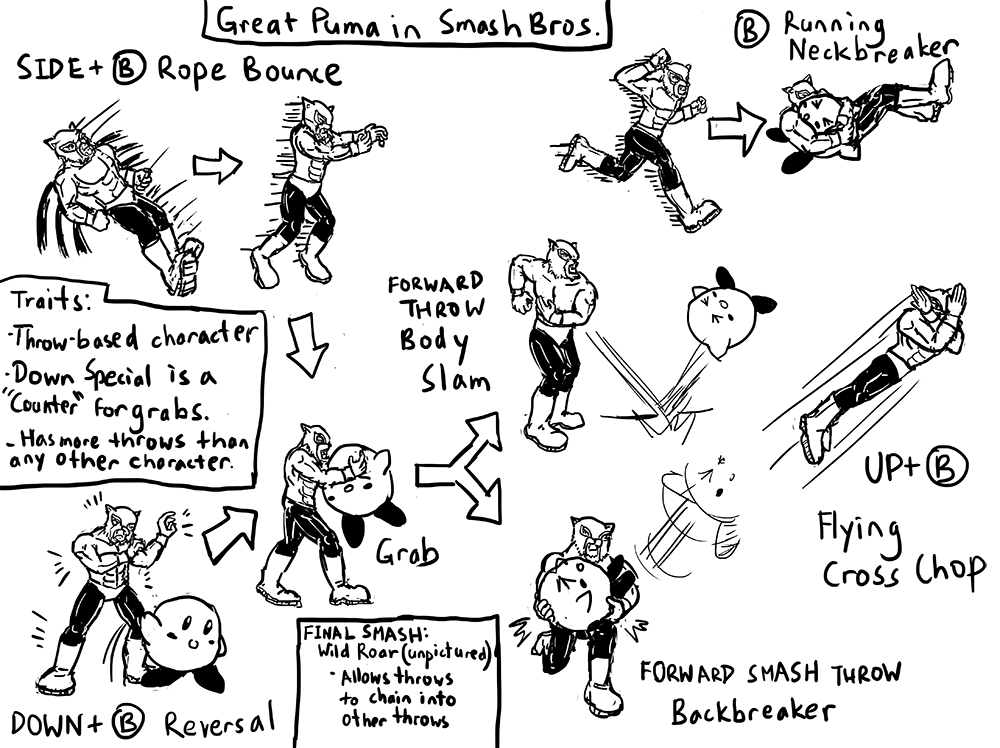 Great Puma in Smash Bros.
SIDE + B Rope Bounce
B Running
Neckbreaker
Traits:
-Throw-based character
-Down Special is a
"Counter" for grabs.
- Has more throws than
any other character.
FORWARD
THROW
Body
Slam
UP + B
Flying
Cross Chop
Grab
DOWN + B Reversal
FINAL SMASH:
Wild Roar (unpictured)
- Allows throws
to chain into
other throws
FORWARD SMASH THROW
Backbreaker